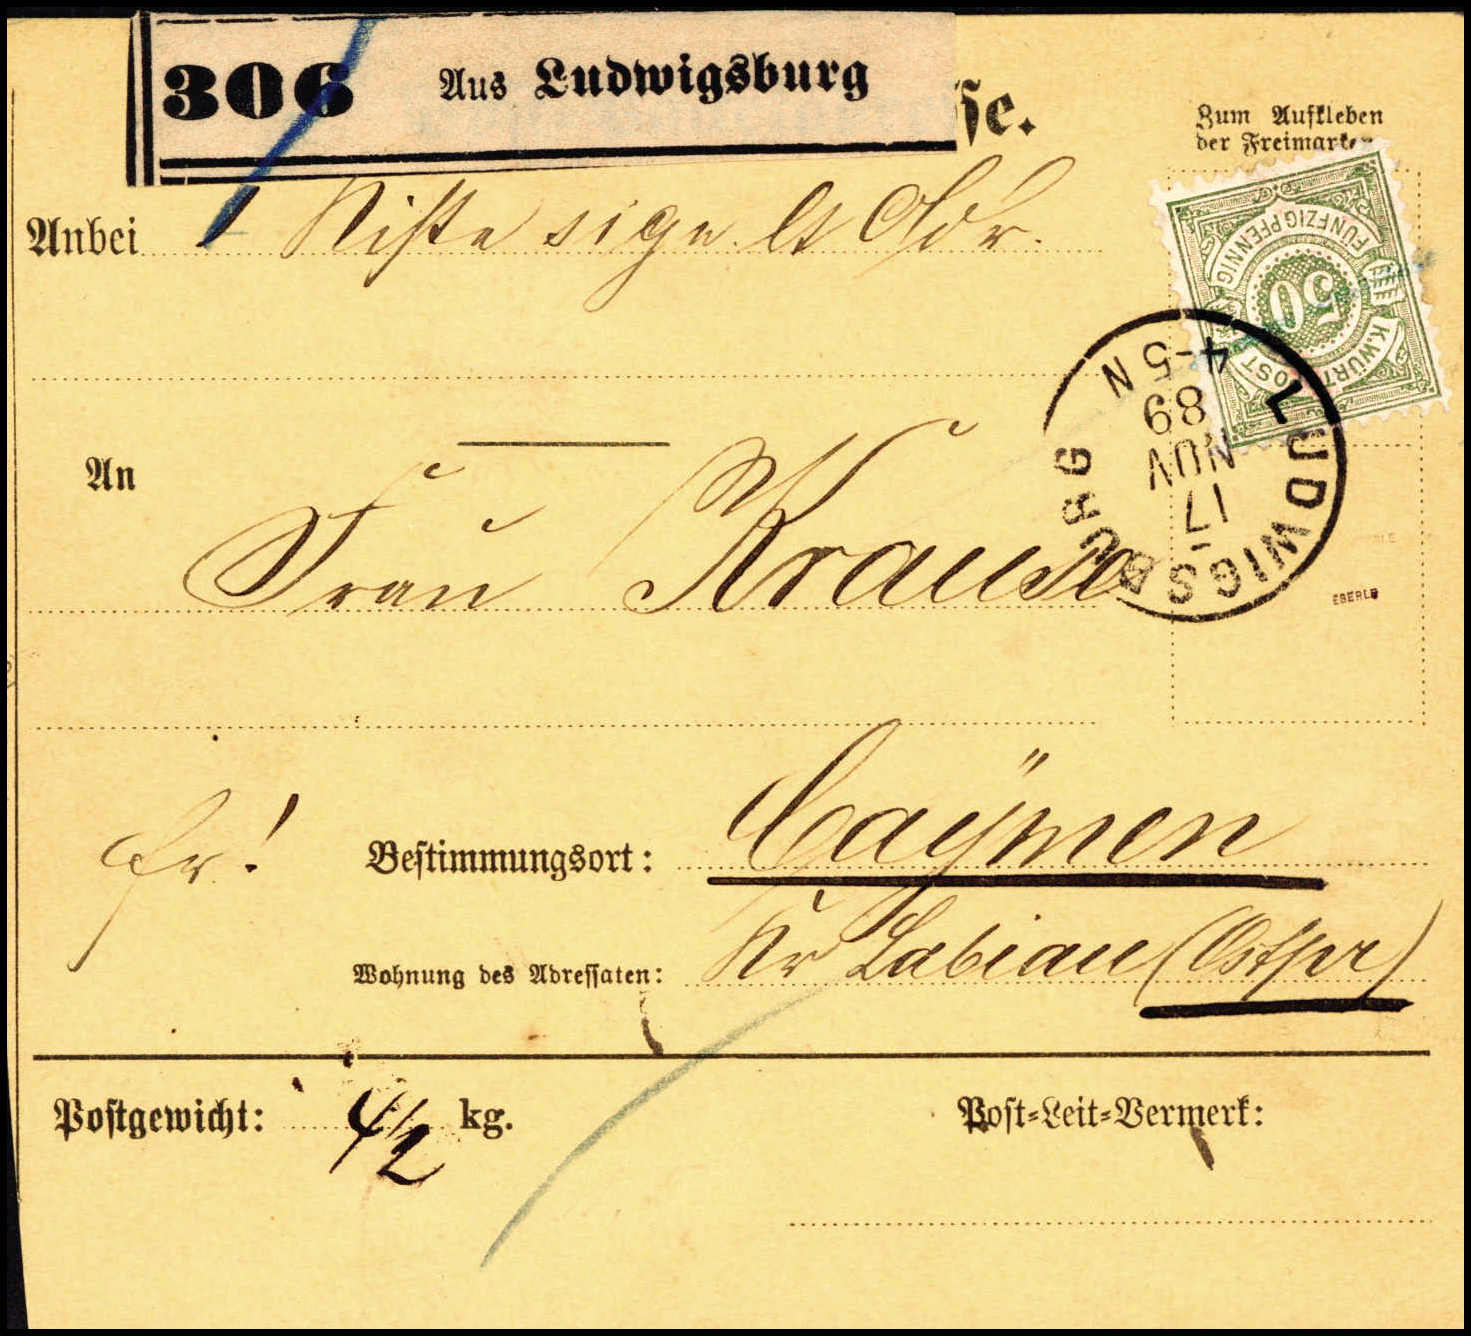 306 Aus Ludwigsburg
ſſe.
Zum Aufkleben
der Freimarken
Anbei 1 Kiste sign. lt Adr.
FÜNFZIG PFENNIG
50
K.WÜRT POST
LUDWIGSBURG
17
NOV
89
4-5 N
An
Frau Krause
EBERLE
fr!
Bestimmungsort: Caÿmen
Wohnung des Adressaten: Kr Labiau (Ostpr)
Postgewicht: 4/2 kg.
Post-Leit-Vermerk: